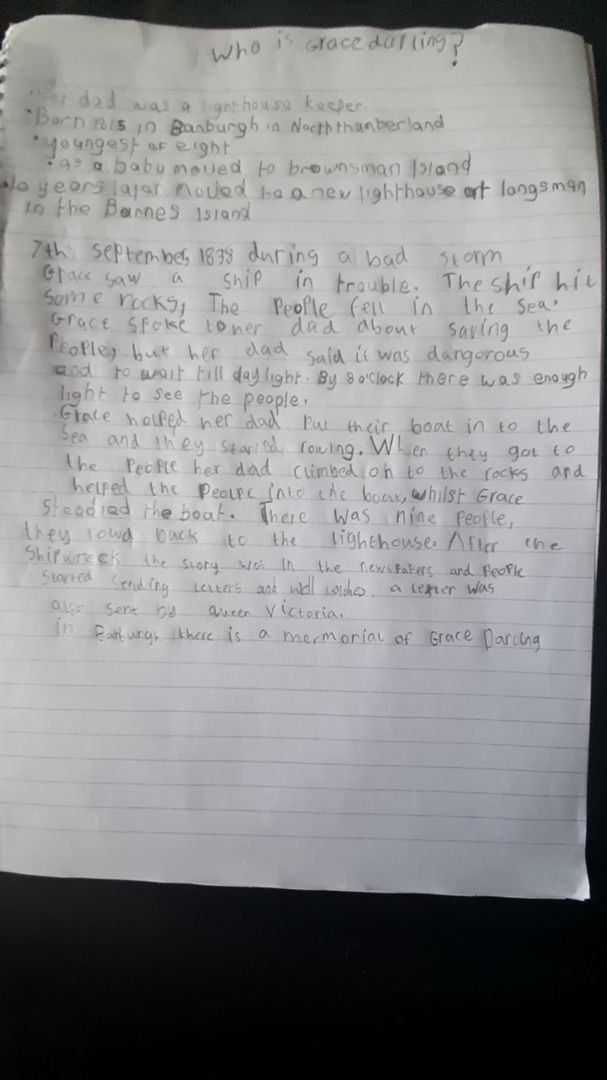 Who is Grace darling?
dad was a lighthouse keeper.
•Born 1815 in Banburgh in Norththumberland
•youngest of eight
•as a baby moved to brownsman Island
10 years later moved to a new lighthouse at longsman
in the Barnes Island
7th september, 1838 during a bad storm
Grace saw a ship in trouble. The ship hit
some rocks, The People fell in the sea.
Grace spoke to her dad about saving the
People, but her dad said it was dangorous
and to wait till daylight. By 8o'clock there was enough
light to see the people.
Grace helped her dad put their boat in to the
sea and they started rowing. When they got to
the People her dad climbed on to the rocks and
helped the Peolpe into the boat, whilst Grace
steadied the boat. There was nine People,
they rowd back to the lighthouse. After the
Shipwreck the story was in the newspaters and People
started sending letters and well wishes, a letter was
also sent by queen Victoria.
in Banburgh there is a mermorial of Grace Darling